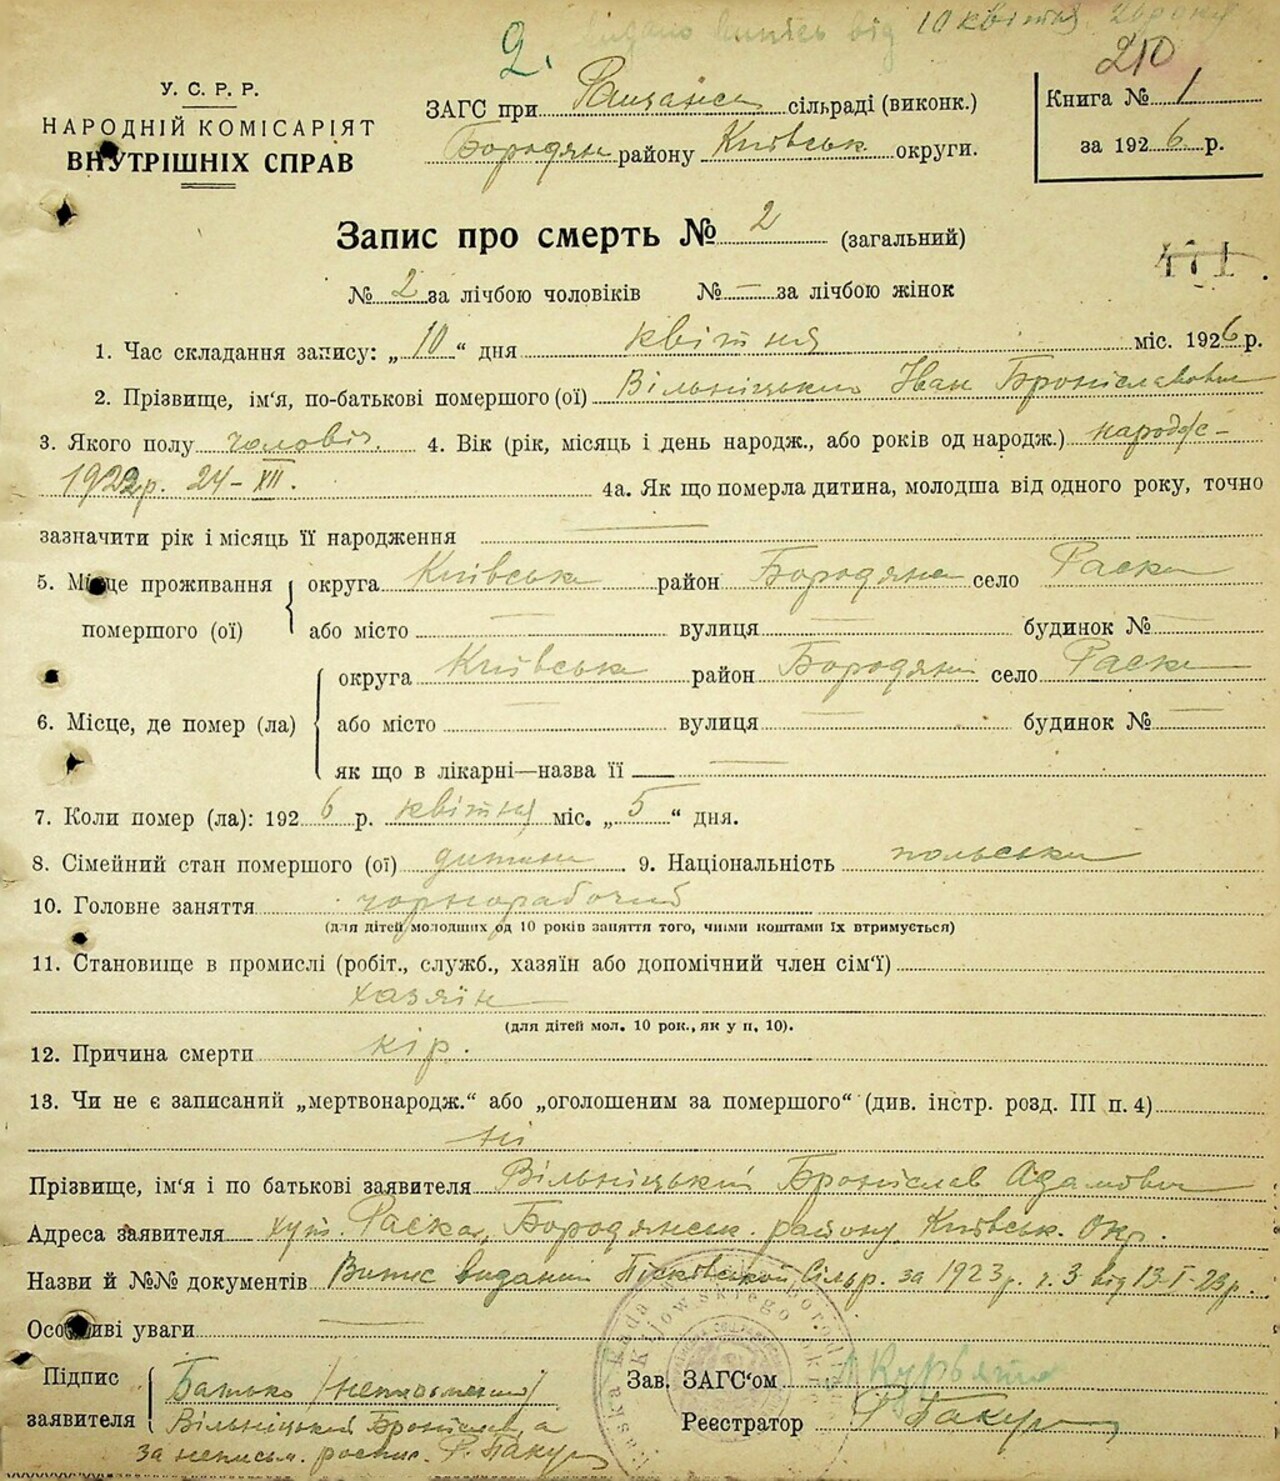 2. видано випись від 10 квітня
210
У. С. Р. Р.
НАРОДНІЙ КОМІСАРІЯТ
ВНУТРІШНІХ СПРАВ
ЗАГС при сільраді (виконк.)
Бородян району Київськ округи.
Книга № 1
за 1926 р.
Запис про смерть № 2 (загальний)
471
№ 2 за лічбою чоловіків № — за лічбою жінок
1. Час складання запису: „10“ дня квітня міс. 1926 р.
2. Прізвище, ім'я, по-батькові помершого (ої) Вільніцький Іван Броніславович
3. Якого полу чоловіч. 4. Вік (рік, місяць і день народж., або років од народж.) народже-
1922 р. 24-XII. 4а. Як що померла дитина, молодша від одного року, точно
зазначити рік і місяць її народження —
5. Місце проживання помершого (ої) округа Київська район Бородянс село Раска
або місто — вулиця — будинок № —
6. Місце, де помер (ла) округа Київська район Бородян село Раска
або місто — вулиця — будинок № —
як що в лікарні—назва її —
7. Коли помер (ла): 1926 р. квітня міс. „5“ дня.
8. Сімейний стан помершого (ої) дитина 9. Національність польська
10. Головне заняття чорнорабочий
(для дітей молодших од 10 років заняття того, чиїми коштами їх втримується)
11. Становище в промислі (робіт., служб., хазяїн або допомічний член сім'ї)
хазяїн
(для дітей мол. 10 рок., як у п. 10).
12. Причина смерти кір.
13. Чи не є записаний „мертвонародж.“ або „оголошеним за помершого“ (див. інстр. розд. III п. 4)
ні
Прізвище, ім'я і по батькові заявителя Вільніцький Броніслав Адамович
Адреса заявителя хут. Раска, Бородянськ. району Київськ. Окр.
Назви й №№ документів Випис виданий Пісківської Сільр. за 1923 р. ч. 3 від 13-I-23 р.
Особливі уваги —
Підпис заявителя Батько /неписьменний/
Вільніцький Броніслав, а
за неписьм. роспис. Пакул
Зав. ЗАГС'ом
Реєстратор Пакул